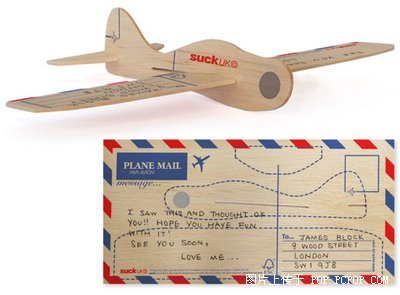 suckUK
PLANE MAIL
PAR AVION
message...
I SAW THIS AND THOUGHT OF
YOU!! HOPE YOU HAVE FUN
WITH IT!
SEE YOU SOON,
LOVE ME...
To... JAMES BLOCK
9 WOOD STREET
LONDON
SW1 9JB
suckUK
图片上传于 POP.PCPOP.COM